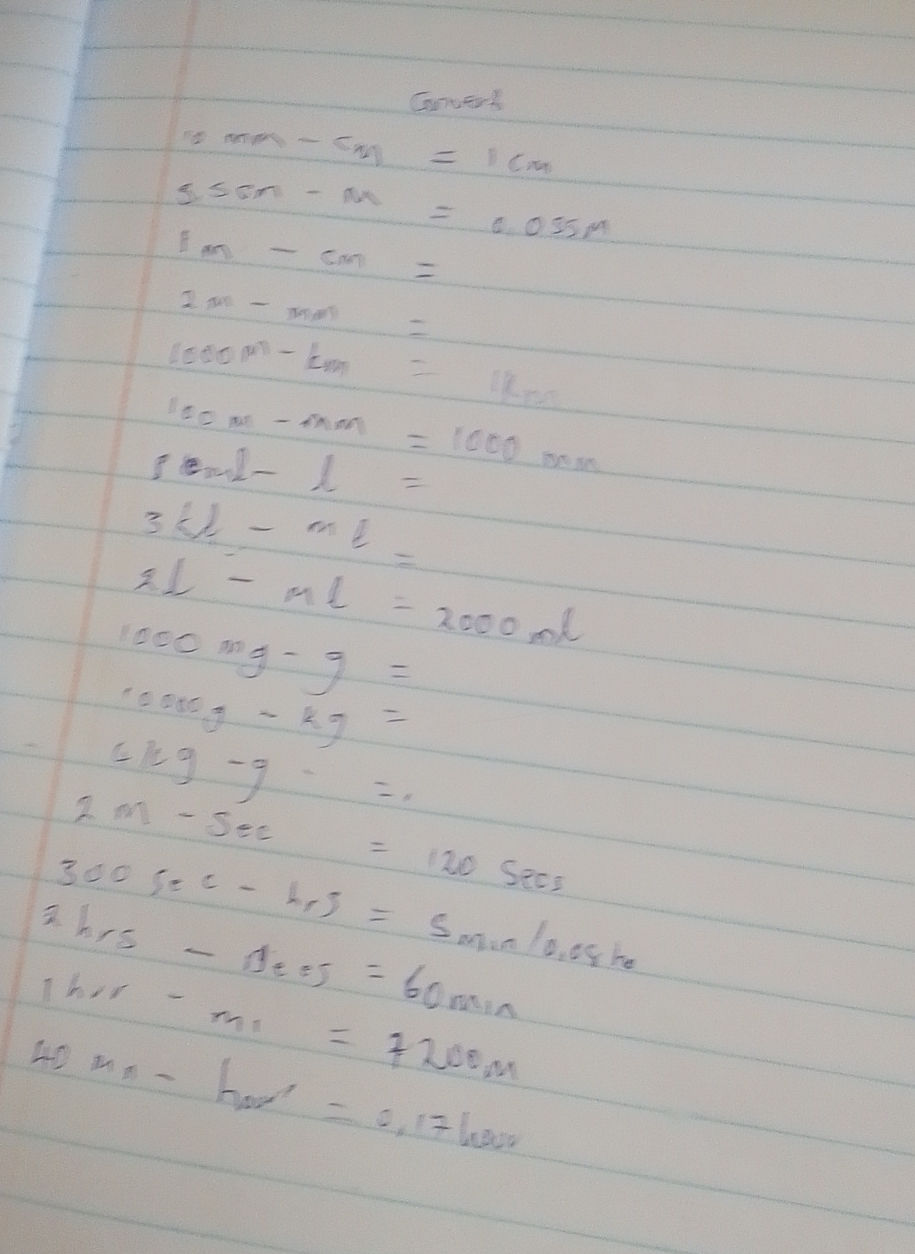 Convert
10 mm - cm = 1 cm
- m = 0.035m
1m - cm =
2m - mm =
1000m - km = 1km
100m - mm = 1000 mm
ml - l =
3kl - ml =
2l - ml = 2000 ml
1000 mg - g =
10000g - kg =
kg - g =
2 m - Sec = 120 Secs
300 sec - hrs = 5 min /0.08 hr
2 hrs - = 60 min
1 hrr - = 7200m
40 mn - hour = 0,17 hour